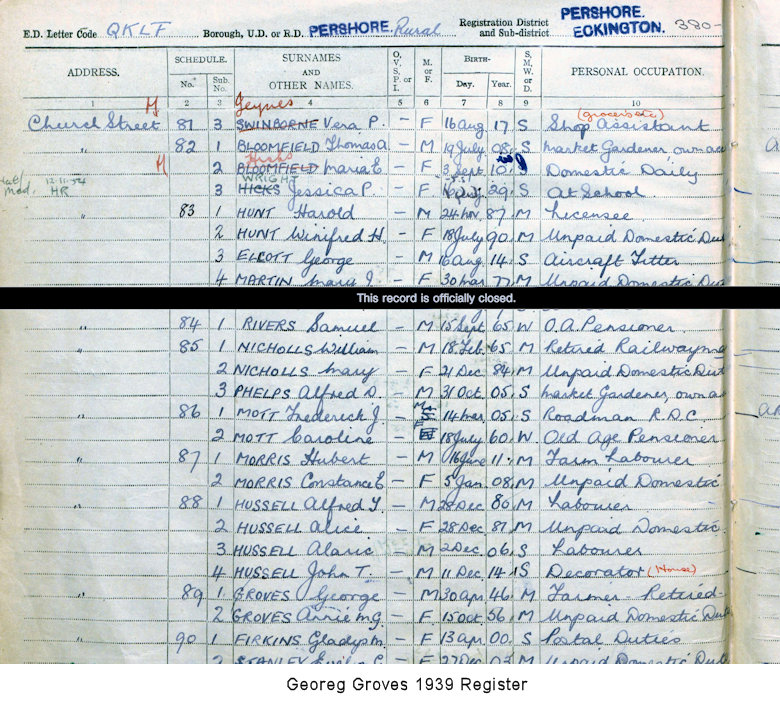 E.D. Letter Code QKLF Borough, U.D. or R.D. PERSHORE. Rural Registration District and Sub-district PERSHORE. ECKINGTON. 380-
ADDRESS. SCHEDULE. SURNAMES AND OTHER NAMES. O, V, S, P, or I. M. or F. BIRTH- S, M, W, or D. PERSONAL OCCUPATION.
No. Sub. No. Day. Year.
1 2 3 4 5 6 7 8 9 10
M Jeynes (grocer's etc)
Church Street 81 3 SWINBORNE Vera P. - F 16 Aug 17 S Shop Assistant
" 82 1 BLOOMFIELD Thomas A. - M 19 July 08 S Market Gardener own a/c
M Hicks
" 2 BLOOMFIELD Maria E - F 3 Sept 10 Domestic Daily
12.11.54 WRIGHT
HR 3 HICKS Jessica P. - F 29 S At School.
" 83 1 HUNT Harold - M 24 Nov 87 M Licensee
2 HUNT Winifred H. - F 18 July 90 M Unpaid Domestic Dut
3 ELCOTT George - M 16 Aug 14 S Aircraft Fitter
4 MARTIN Mary J. - F 30 Mar 77 M Unpaid Domestic Dut
This record is officially closed.
" 84 1 RIVERS Samuel - M 15 Sept 65 W O.A. Pensioner.
" 85 1 NICHOLLS William - M 18 Feb 65 M Retired Railwayma
2 NICHOLLS Mary - F 21 Dec 84 M Unpaid Domestic Dut
3 PHELPS Alfred D. - M 31 Oct 05 S Market Gardener, own a/c
" 86 1 MOTT Frederick J. - M 14 Mar 05 S Roadman R.D.C.
2 MOTT Caroline - F 18 July 60 W Old Age Pensioner
" 87 1 MORRIS Hubert - M 16 June 11 M Farm Labourer
2 MORRIS Constance E - F 5 Jan 08 M Unpaid Domestic
" 88 1 HUSSELL Alfred T. - M 28 Dec 80 M Labourer
2 HUSSELL Alice - F 28 Dec 81 M Unpaid Domestic
3 HUSSELL Alaric - M 2 Dec 06 S Labourer
4 HUSSELL John T. - M 11 Dec 14 S Decorator (House)
89 1 GROVES George - M 30 Apr 46 M Farmer - Retired -
2 GROVES Annie M.G. - F 15 Oct 56 M Unpaid Domestic Dut
90 1 FIRKINS Gladys M. - F 13 Apr 00 S Postal Duties
2 STANLEY - F 27 Dec 03 M Unpaid Domestic Dut
Georeg Groves 1939 Register